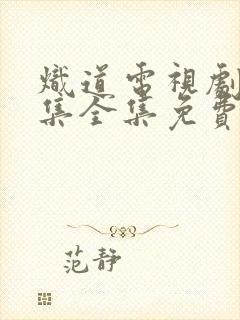 熾道電視劇
集全集免費
范静